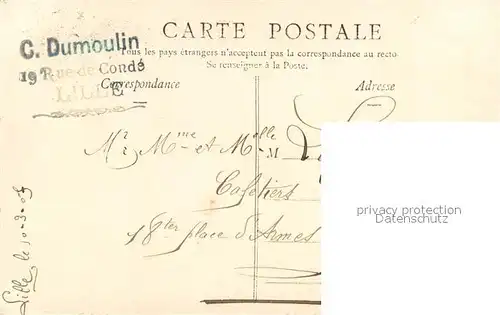 CARTE POSTALE
Tous les pays étrangers n'acceptent pas la correspondance au recto
Se renseigner à la Poste.
C. Dumoulin
19 Rue de Condé
LILLE
Correspondance
Adresse
Mr Mme et Melle
M
Cafetiers
place d'Armes
Lille le 10-3-05
privacy protection
Datenschutz